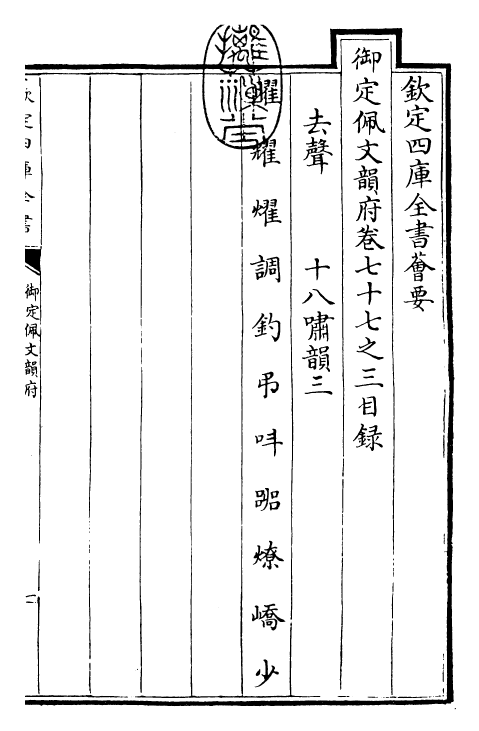 欽定四庫全書薈要
御定佩文韻府卷七十七之三目録
去聲 十八嘯韻三
耀 燿 調 釣 弔 叫 燎 嶠 少
欽定四庫全書
御定佩文韻府
一